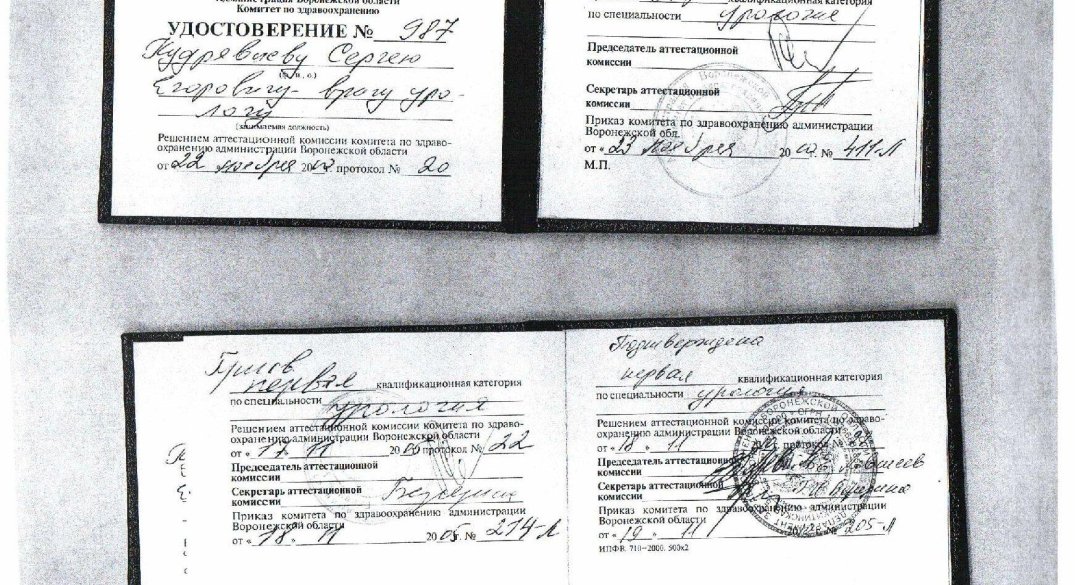 Администрация Воронежской области
Комитет по здравоохранению
УДОСТОВЕРЕНИЕ № 987
Кудрявцеву Сергею
(ф., и., о.)
Егоровичу - врачу уро-
логу
(занимаемая должность)
Решением аттестационной комиссии комитета по здраво-
охранению администрации Воронежской области
от « 22 ноября 2000г. протокол № 20
квалификационная категория
по специальности урология
Председатель аттестационной
комиссии
Секретарь аттестационной
комиссии
Приказ комитета по здравоохранению администрации
Воронежской обл.
от « 23 ноября 2000г. № 411-Л
М.П.
первая квалификационная категория
по специальности урология
Решением аттестационной комиссии комитета по здраво-
охранению администрации Воронежской области
от « 17 » 11 2005г. протокол № 22
Председатель аттестационной
комиссии
Секретарь аттестационной
комиссии
Приказ комитета по здравоохранению администрации
Воронежской области
от « 18 » 11 2005г. № 214-Л
Подтверждена
первая квалификационная категория
по специальности урология
Решением аттестационной комиссии комитета по здраво-
охранению администрации Воронежской области
от « 18 » 11 протокол №
Председатель аттестационной
комиссии
Секретарь аттестационной
комиссии
Приказ комитета по здравоохранению администрации
Воронежской области
от « 19 » 11 № 205-Л
ИПФВ. 710–2000. 500х2